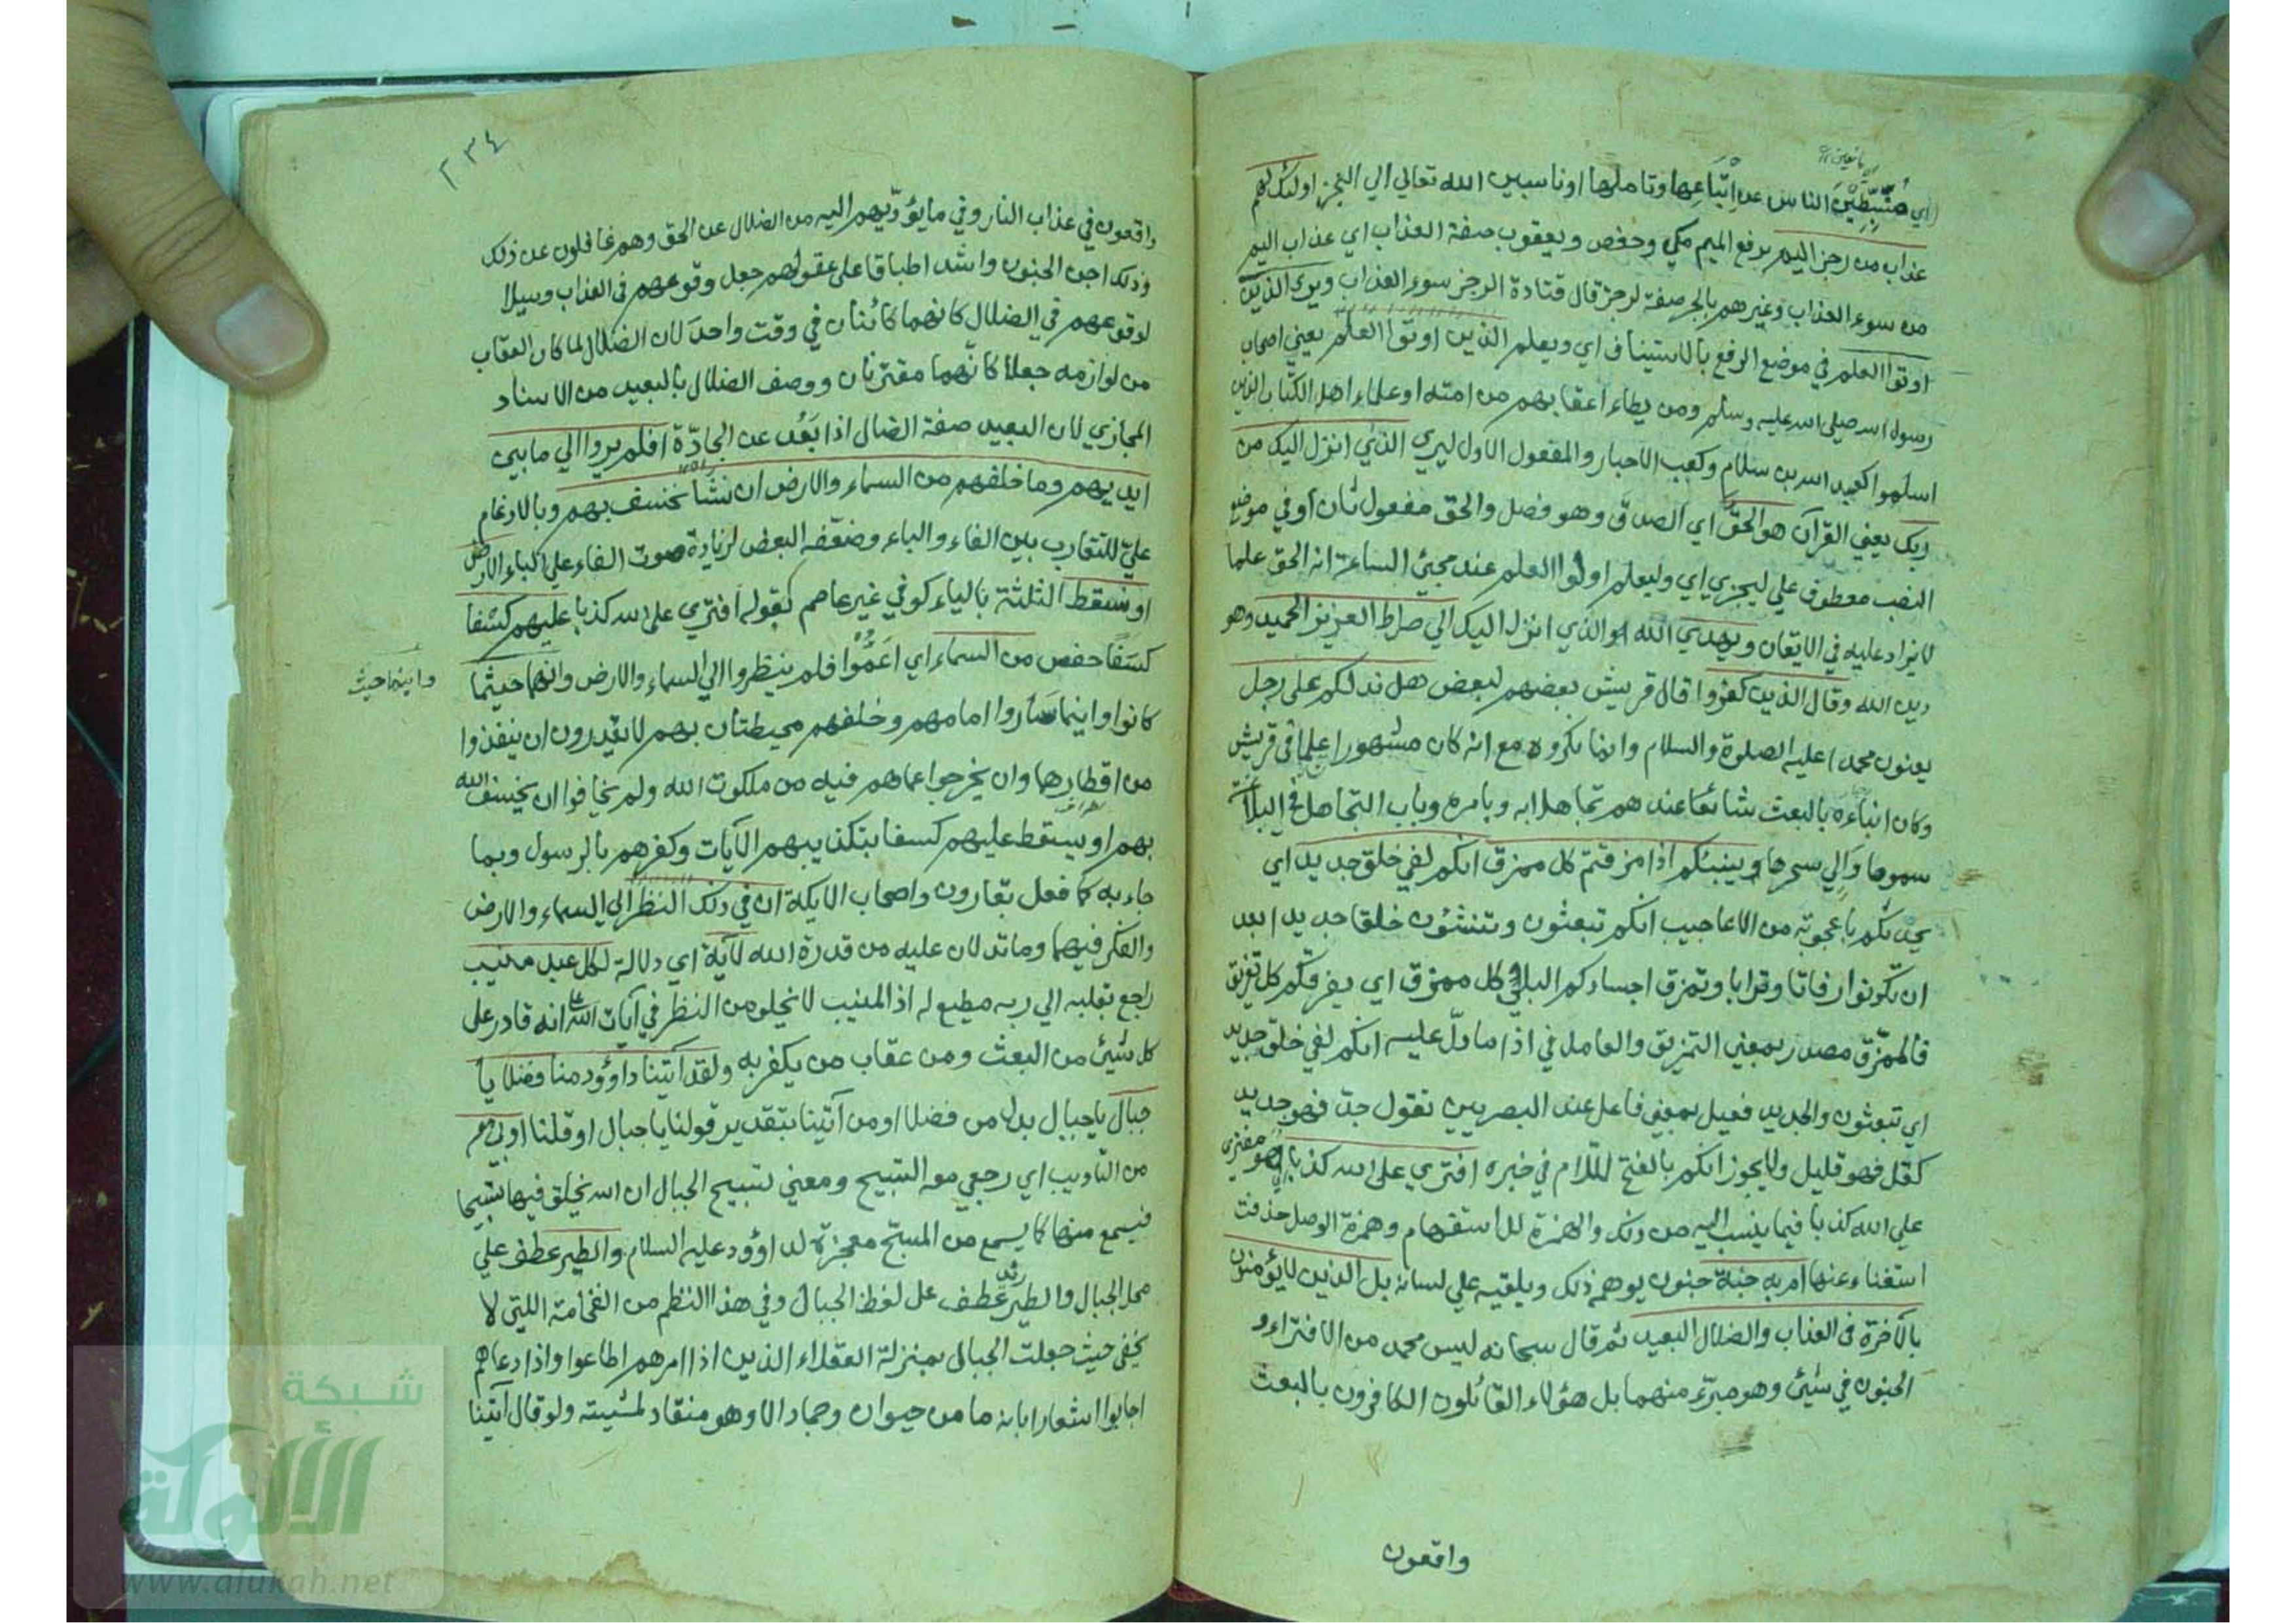 اي مثبطين الناس عن اتباعها وتاملها او ناسبين الله تعالي الي العجز اولئك لهم
عذاب من رجز اليم برفع الميم مكي وحفص ويعقوب صفة العذاب اي عذاب اليم
من سوء العذاب وغيرهم بالجر صفة لرجز قال قتادة الرجز سوء العذاب ويري الذين
اوتوا العلم في موضع الرفع بالاستيناف اي ويعلم الذين اوتوا العلم يعني اصحاب
رسول الله صلى الله عليه وسلم ومن يطاء اعقابهم من امته او علماء اهل الكتاب الذين
اسلموا كعبد الله بن سلام وكعب الاحبار والمفعول الاول ليري الذي انزل اليك من
ربك يعني القرآن هو الحق اي الصدق وهو فصل والحق مفعول ثان او في موضع
النصب معطوف علي ليجزي اي وليعلم اولوا العلم عند مجيئ الساعة انه الحق علما
لا يزاد عليه في الايقان ويهدي الله او الذي انزل اليك الي صراط العزيز الحميد وهو
دين الله وقال الذين كفروا قال قريش بعضهم لبعض هل ندلكم على رجل
يعنون محمدا عليه الصلوة والسلام وانما نكروه مع انه كان مشهورا علما في قريش
وكان انباءه بالبعث شائعا عندهم تجاهلا به وبامره وباب التجاهل في البلاغة
سموها والي سحرها وينبئكم اذا مزقتم كل ممزق انكم لفي خلق جديد اي
يحدثكم باعجوبة من الاعاجيب انكم تبعثون وتنشئون خلقا جديدا بعد
ان تكونوا رفاتا وترابا وتمزق اجسادكم البلي كل ممزق اي يفرقكم كل تفريق
فالممزق مصدر بمعني التمزيق والعامل في اذا ما دل عليه انكم لفي خلق جديد
اي تبعثون والجديد فعيل بمعني فاعل عند البصريين تقول جد فهو جديد
كقل فهو قليل ولا يجوز انكم بالفتح للام في خبره افتري على الله كذبا اهو مفتري
علي الله كذبا فيما ينسب اليه من ذلك والهمزة للاستفهام وهمزة الوصل حذفت
استغناء عنها ام به جنة جنون يوهمه ذلك ويلقيه علي لسانه بل الذين لا يؤمنون
بالآخرة في العذاب والضلال البعيد ثم قال سبحانه ليس محمد من الافتراء و
الجنون في شيئ وهو مبرء منهما بل هؤلاء القائلون الكافرون بالبعث
واقعون
٢٣٤
واقعون في عذاب النار وفي ما يؤديهم اليه من الضلال عن الحق وهم غافلون عن ذلك
وذلك اجن الجنون واشد اطباقا على عقولهم جعل وقوعهم في العذاب وسيلا
لوقوعهم في الضلال كانهما كائنان في وقت واحد لان الضلال لما كان العقاب
من لوازمه جعلا كانهما مقترنان ووصف الضلال بالبعيد من الاسناد
المجازي لان البعيد صفة الضال اذا بعد عن الجادة افلم يروا الي ما بين
ايديهم وما خلفهم من السماء والارض ان نشأ نخسف بهم وبالادغام
علي للتقارب بين الفاء والباء وضعفه البعض لزيادة صوت الفاء علي الباء الارض
او نسقط الثلثة بالياء كوفي غير عاصم كقوله افتري على الله كذبا عليهم كسفا
كسفا حفص من السماء اي اعموا فلم ينظروا الي السماء والارض وانهما حيثما
واينما حيث
كانوا واينما ساروا امامهم وخلفهم محيطتان بهم لا يقدرون ان ينفذوا
من اقطارهما وان يخرجوا عما هم فيه من ملكوت الله ولم يخافوا ان يخسف الله
بهم او يسقط عليهم كسفا بتكذيبهم الآيات وكفرهم بالرسول وبما
جاء به كما فعل بقارون واصحاب الايكة ان في ذلك النظر الي السماء والارض
والفكر فيهما وما تدلان عليه من قدرة الله لآية اي دلالة لكل عبد منيب
راجع بقلبه الي ربه مطيع له اذ المنيب لا يخلو من النظر في آيات الله انه قادر على
كل شيئ من البعث ومن عقاب من يكفر به ولقد آتينا داوود منا فضلا يا
جبال يا جبال بدل من فضلا او من آتينا بتقدير قولنا يا جبال او قلنا اوبي معه
من التاويب اي رجعي معه التسبيح ومعني تسبيح الجبال ان الله يخلق فيها تسبيحا
فيسمع منها كما يسمع من المسبح معجزة لداوود عليه السلام والطير عطف علي
محل الجبال والطير عطف على لفظ الجبال وفي هذا النظم من الفخامة اللتي لا
يخفى حيث جعلت الجبال بمنزلة العقلاء الذين اذا امرهم اطاعوا واذا دعاهم
اجابوا اشعارا بانه ما من حيوان وجماد الا وهو منقاد لمشيته ولو قال آتينا
شبكة
الألوكة
www.alukah.net